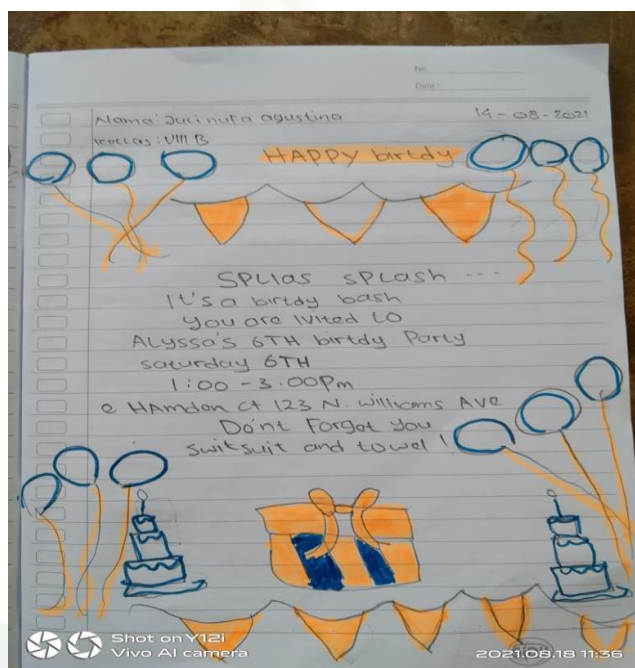 No.
Date :
Nama: Juli nuta agustina 14-08-2021
kellas : VIII B
HAPPY birtdy
SPLIAS SPLASH ---
It's a birtdy bash
You are Ivited to
ALYSSA'S 6TH birtdy Party
saturday 6TH
1:00 - 3.00 Pm
@ HAmdon ct 123 N. williams AVe
Do'nt Forgot you
switsuit and towel !
Shot on Y12i
Vivo AI camera
2021.08.18 11:36